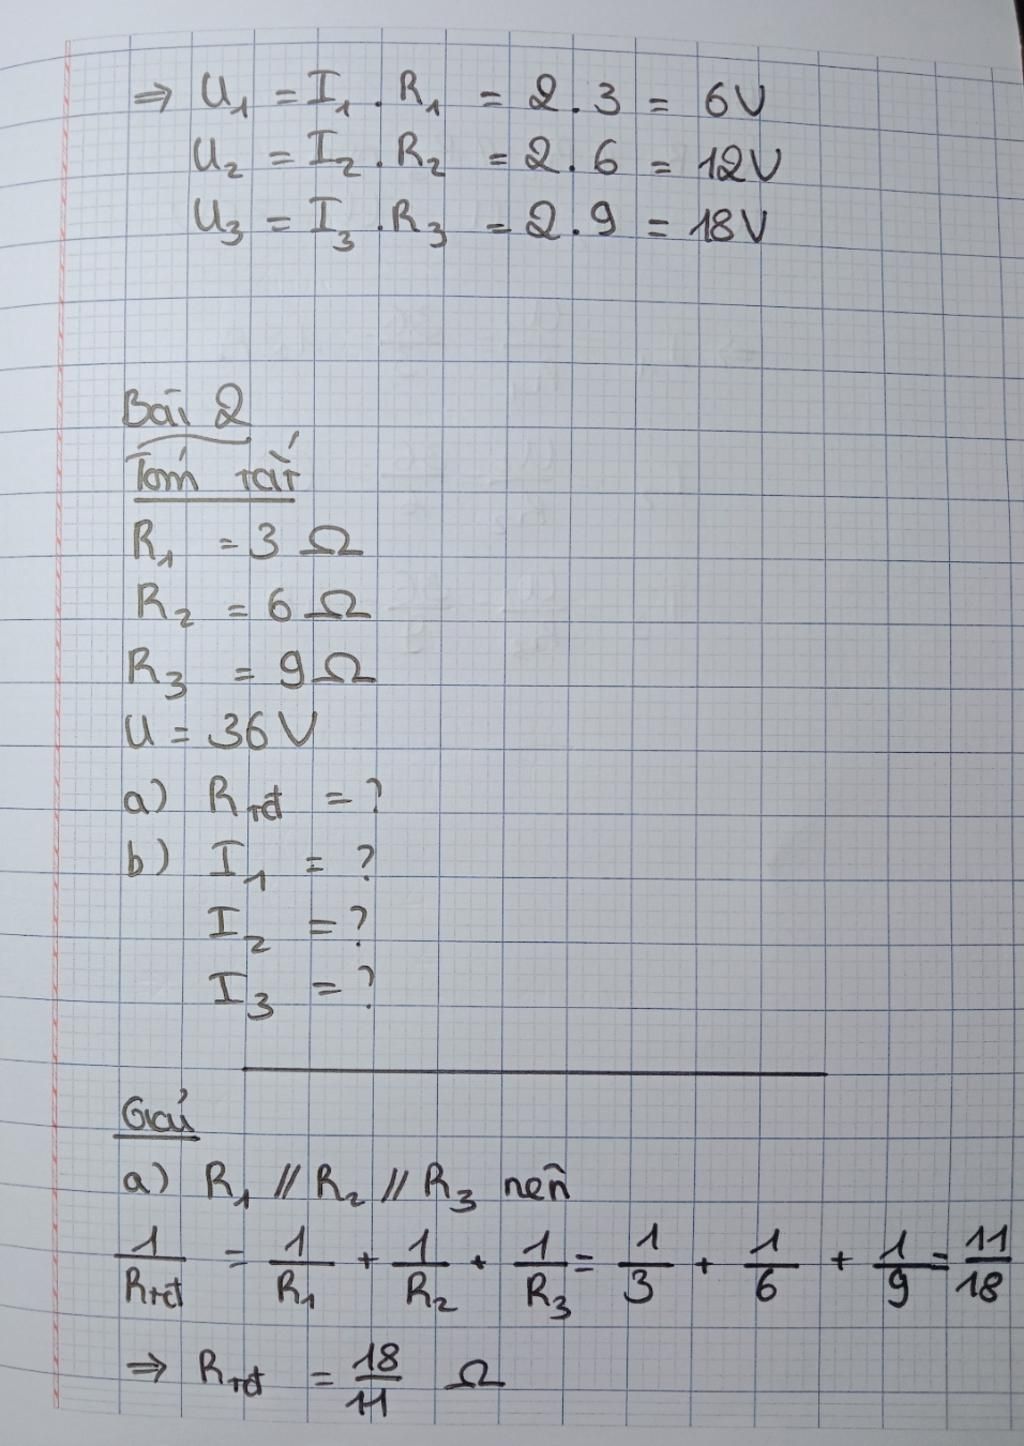 ⇒ U₁ = I₁ . R₁ = 2 . 3 = 6V
U₂ = I₂ . R₂ = 2 . 6 = 12V
U₃ = I₃ . R₃ = 2 . 9 = 18V
Bài 2
Tóm tắt
R₁ = 3 Ω
R₂ = 6 Ω
R₃ = 9 Ω
U = 36 V
a) Rtđ = ?
b) I₁ = ?
I₂ = ?
I₃ = ?
Giải
a) R₁ // R₂ // R₃ nên
1/Rtđ = 1/R₁ + 1/R₂ + 1/R₃ = 1/3 + 1/6 + 1/9 = 11/18
⇒ Rtđ = 18/11 Ω